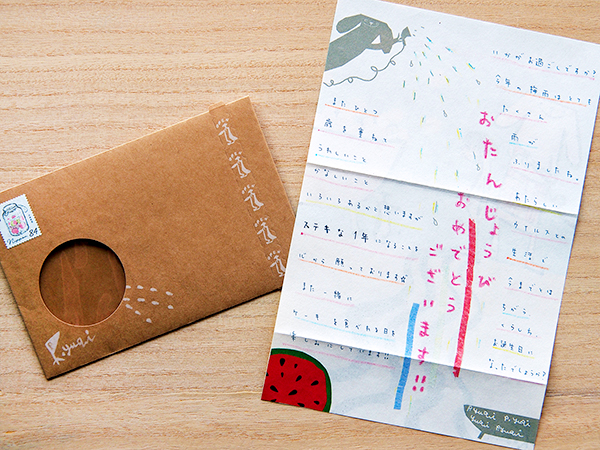 いかがお過ごしですか?
今年の梅雨はとても
たくさん
雨が
ふりましたね。
あたらしい
ウイルスとの
生活で
今までとは
ちがう
くらしの
お誕生日に
なったでしょうか?
おたんじょうび
おめでとう
ございます!!
またひとつ
歳を重ねて
うれしいこと
かなしいこと
いろいろあるかと思いますが
ステキな1年になることを
心から願っております☆
また一緒に
ケーキを食べれる日を
楽しみにしています!!
84
K.yuqi